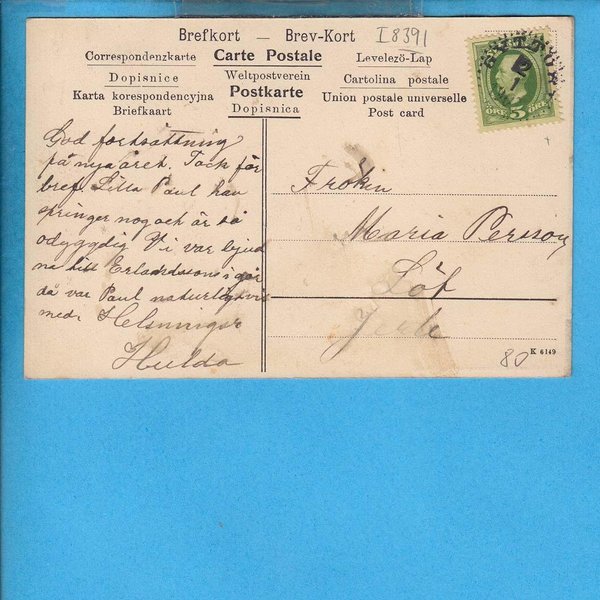 Brefkort — Brev-Kort
I 8391
Correspondenzkarte Carte Postale Levelező-Lap
Dopisnice Weltpostverein Cartolina postale
Karta korespondencyjna Postkarte Union postale universelle
Briefkaart Dopisnica Post card
5 ÖRE
ÖRE
God fortsättning
på nya året. Tack för
bref. Lilla Paul kan
springer nog och är så
odygdig Vi var bjud
na till Erlandssons i går
då var Paul naturligtvis
med. Helsningar
Hulda
Fröken
Maria Persson
Löt
80
K 6149